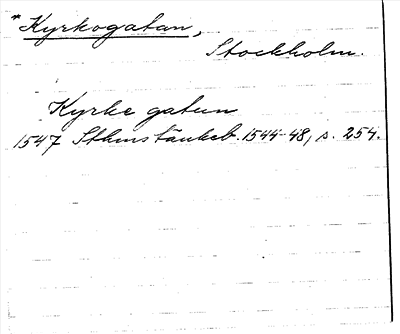 *Kyrkogatan,
Stockholm.
Kyrke gatun
1547 Sthms tänkeb. 1544-48, s. 254.